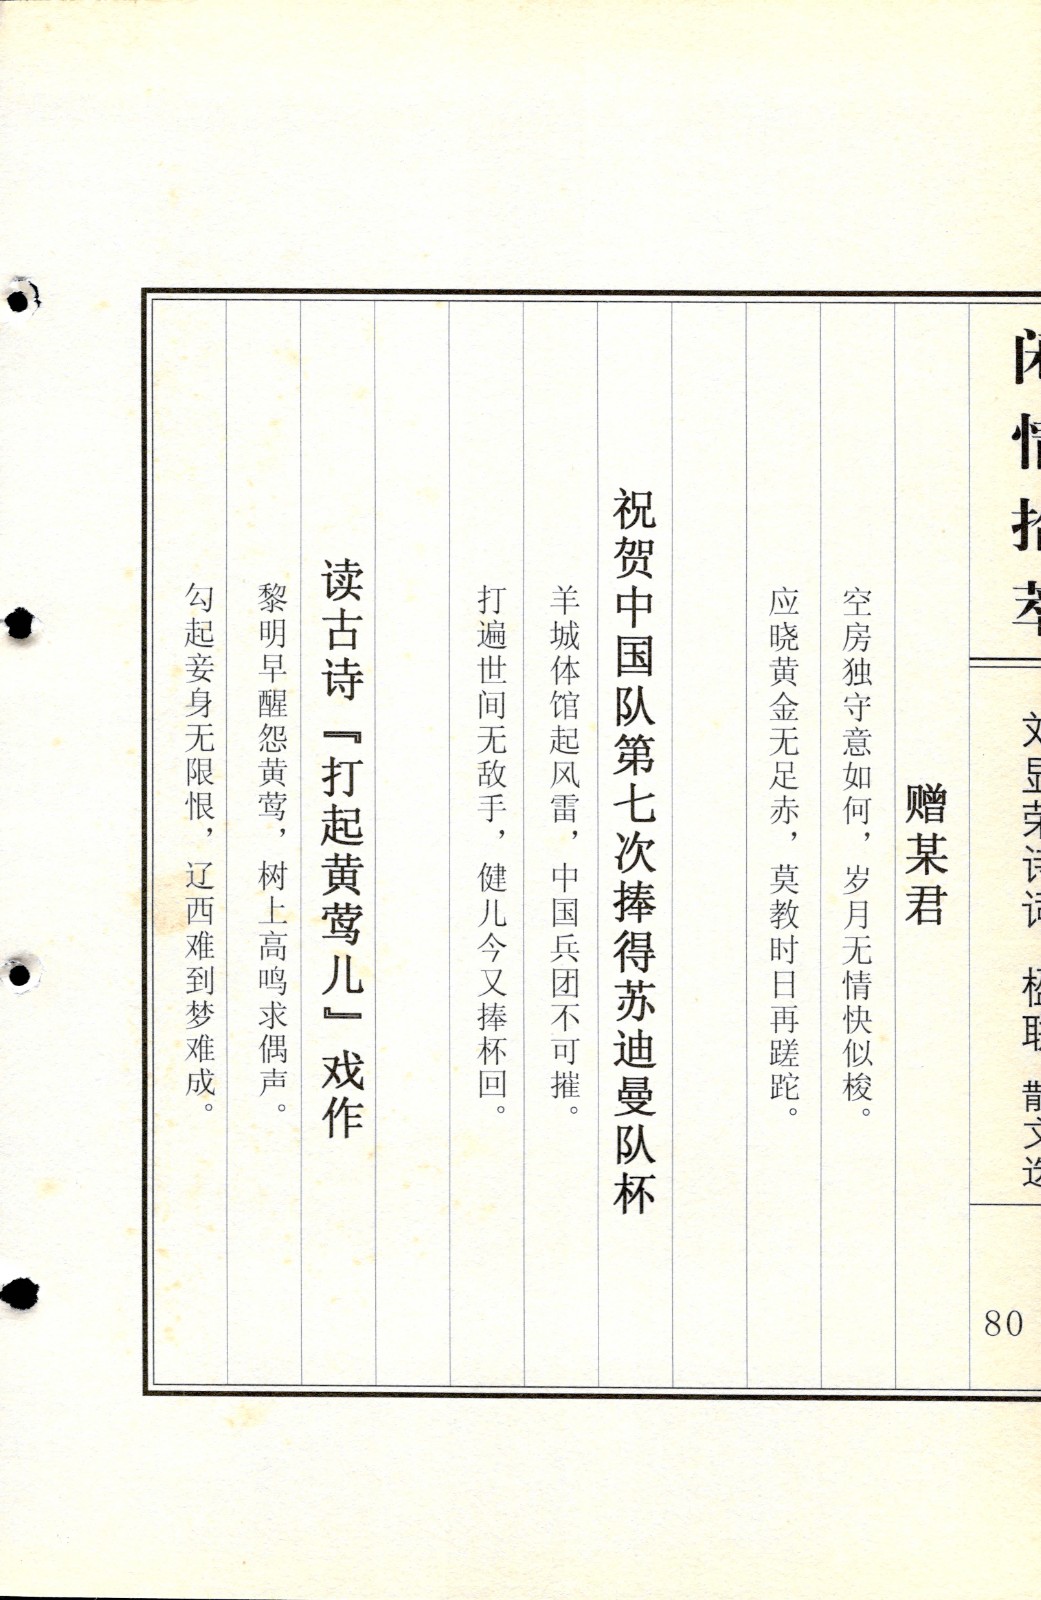 闲情拾萃
刘显荣诗词 楹联 散文选
80
赠某君
空房独守意如何，岁月无情快似梭。
应晓黄金无足赤，莫教时日再蹉跎。
祝贺中国队第七次捧得苏迪曼队杯
羊城体馆起风雷，中国兵团不可摧。
打遍世间无敌手，健儿今又捧杯回。
读古诗『打起黄莺儿』戏作
黎明早醒怨黄莺，树上高鸣求偶声。
勾起妾身无限恨，辽西难到梦难成。